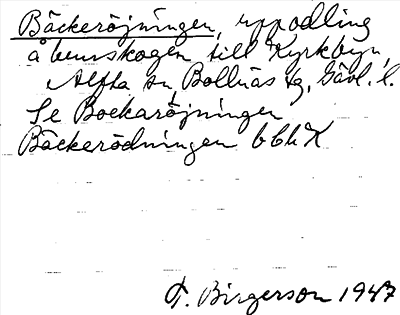 Bäckeröjningen, uppodling
å hemskogen till Kyrkbyn,
Alfta sn, Bollnäs tg, Gävl. l.
Se Bockaröjningen
Bäckerödningen bbhK
T. Birgerson 1947